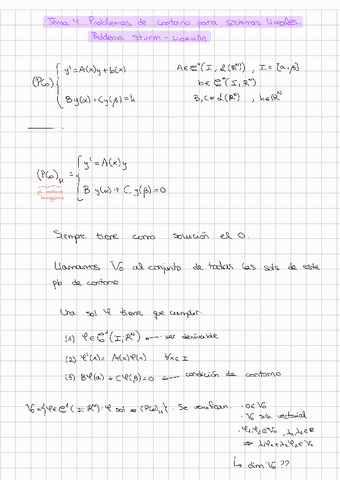 Tema 4. Problemas de contorno para sistemas lineales.
Problema Sturm-Liouville
(PCo) { y' = A(x)y + b(x)    A ∈ C⁰(I, L(Rᴺ)), I = [α, β]
b ∈ C⁰(I, Rᴺ)
By(α) + Cy(β) = h    B, C ∈ L(Rᴺ), h ∈ Rᴺ
(PCo)H = { y' = A(x)y
B y(α) + C y(β) = 0
Siempre tiene como solución el 0.
Llamamos V₀ al conjunto de todas las sols de este
pb de contorno
Una sol φ tiene que cumplir:
(1) φ ∈ C¹(I; Rᴺ) ← ser derivable
(2) φ'(x) = A(x)φ(x) ∀x ∈ I
(3) Bφ(α) + Cφ(β) = 0 ← condición de contorno
V₀ = {φ ∈ C¹(I; Rᴺ): φ sol de (PCo)H}. Se verifican: · 0 ∈ V₀
· V₀ sub. vectorial
· φ₁, φ₂ ∈ V₀, λ₁, λ₂ ∈ R
⇒ λ₁φ₁ + λ₂φ₂ ∈ V₀
↳ dim V₀ ??